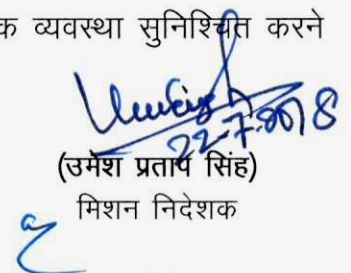 क व्यवस्था सुनिश्चित करने
22-7-2018
(उमेश प्रताप सिंह)
मिशन निदेशक